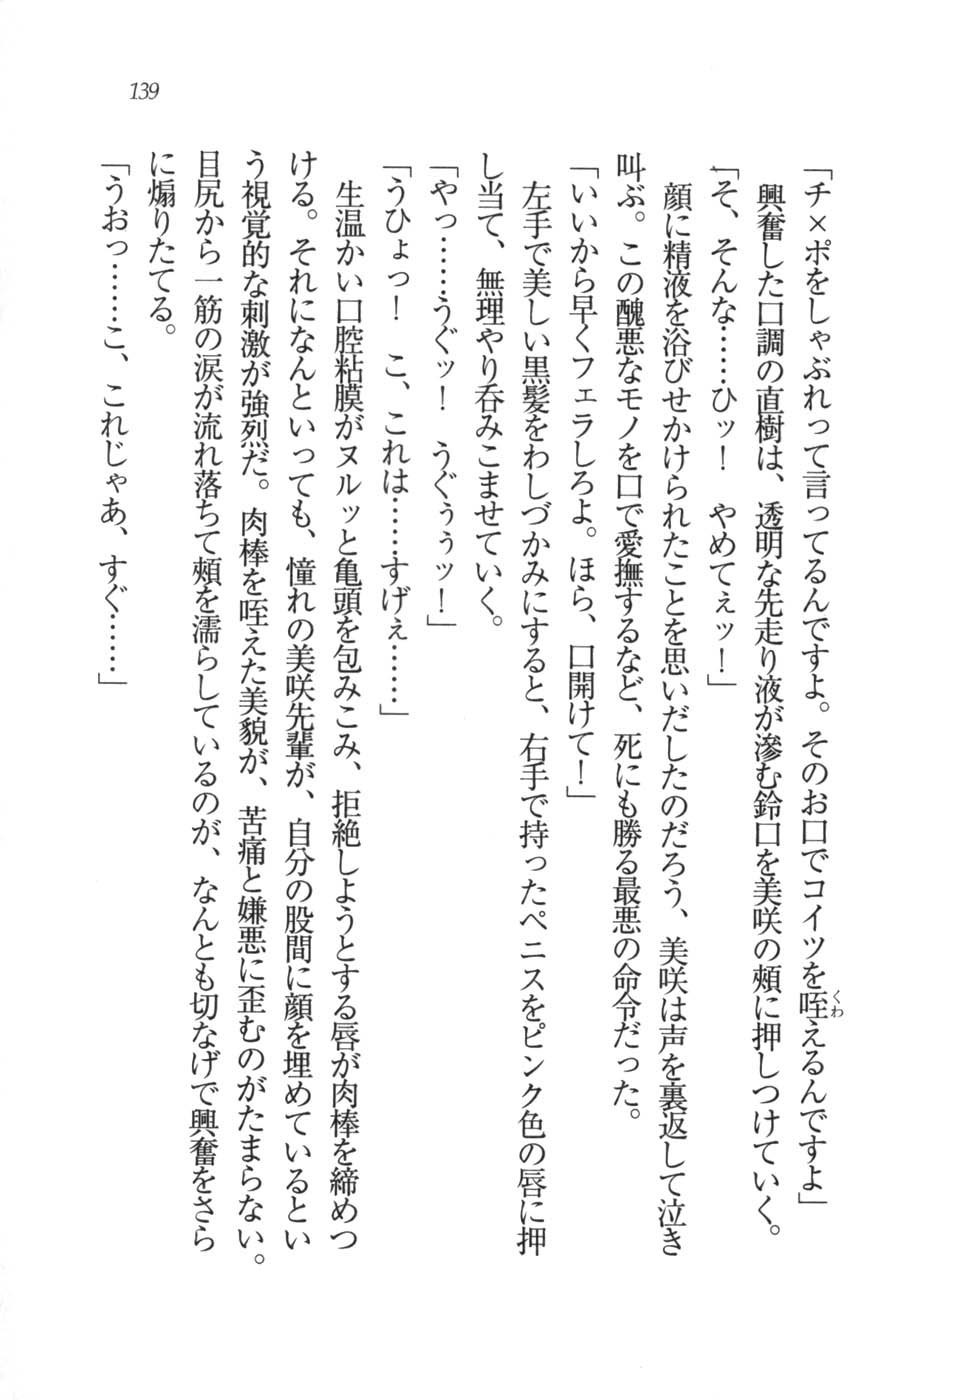 139
「チ×ポをしゃぶれって言ってるんですよ。そのお口でコイツを咥えるんですよ」
くわ
興奮した口調の直樹は、透明な先走り液が滲む鈴口を美咲の頰に押しつけていく。
「そ、そんな……ひッ！　やめてぇッ！」
顔に精液を浴びせかけられたことを思いだしたのだろう、美咲は声を裏返して泣き
叫ぶ。この醜悪なモノを口で愛撫するなど、死にも勝る最悪の命令だった。
「いいから早くフェラしろよ。ほら、口開けて！」
左手で美しい黒髪をわしづかみにすると、右手で持ったペニスをピンク色の唇に押
し当て、無理やり呑みこませていく。
「やっ……うぐッ！　うぐぅぅッ！」
「うひょっ！　こ、これは……すげぇ……」
生温かい口腔粘膜がヌルッと亀頭を包みこみ、拒絶しようとする唇が肉棒を締めつ
ける。それになんといっても、憧れの美咲先輩が、自分の股間に顔を埋めているとい
う視覚的な刺激が強烈だ。肉棒を咥えた美貌が、苦痛と嫌悪に歪むのがたまらない。
目尻から一筋の涙が流れ落ちて頰を濡らしているのが、なんとも切なげで興奮をさら
に煽りたてる。
「うおっ……こ、これじゃあ、すぐ……」